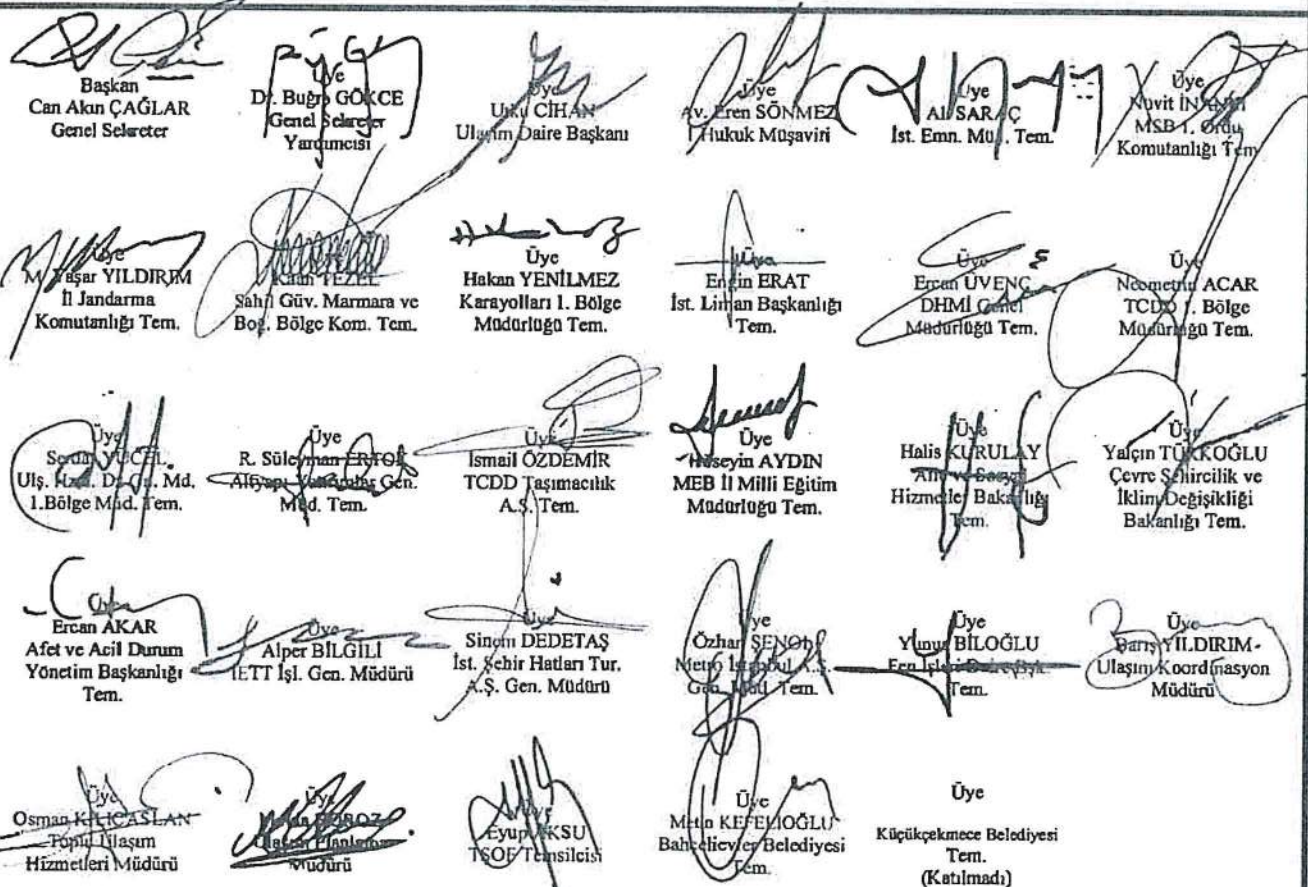 Başkan
Can Akın ÇAĞLAR
Genel Sekreter
Üye
Dr. Buğra GÖKCE
Genel Sekreter
Yardımcısı
Üye
Utku CİHAN
Ulaşım Daire Başkanı
Av. Eren SÖNMEZ
Hukuk Müşaviri
Üye
Ali SARAÇ
İst. Emn. Müd. Tem.
Üye
Nuvit
MSB 1. Ordu
Komutanlığı Tem
Üye
M. Yaşar YILDIRIM
İl Jandarma
Komutanlığı Tem.
Kaan TEZEL
Sahil Güv. Marmara ve
Boğ. Bölge Kom. Tem.
Üye
Hakan YENİLMEZ
Karayolları 1. Bölge
Müdürlüğü Tem.
Üye
Engin ERAT
İst. Liman Başkanlığı
Tem.
Üye
Ercan ÜVENÇ
DHMİ Genel
Müdürlüğü Tem.
Üye
Necmettin ACAR
TCDD 1. Bölge
Müdürlüğü Tem.
Üye
Serdar YÜCEL
Ulş. Md.
1.Bölge Müd. Tem.
Üye
R. Süleyman
Altyapı Yatırımlar Gen.
Müd. Tem.
Üye
İsmail ÖZDEMİR
TCDD Taşımacılık
A.Ş. Tem.
Üye
Hüseyin AYDIN
MEB İl Milli Eğitim
Müdürlüğü Tem.
Üye
Halis KURULAY
Aile ve Sosyal
Hizmetler Bakanlığı
Tem.
Üye
Yalçın TÜRKOĞLU
Çevre Şehircilik ve
İklim Değişikliği
Bakanlığı Tem.
Üye
Ercan AKAR
Afet ve Acil Durum
Yönetim Başkanlığı
Tem.
Üye
Alper BİLGİLİ
İETT İşl. Gen. Müdürü
Üye
Sinem DEDETAŞ
İst. Şehir Hatları Tur.
A.Ş. Gen. Müdürü
Üye
Özhan ŞENOL
Metro İstanbul A.Ş.
Gen. Müd. Tem.
Üye
Yunus BİLOĞLU
Fen İşleri Daire Bşk.
Tem.
Üye
Barış YILDIRIM
Ulaşım Koordinasyon
Müdürü
Üye
Osman KILIÇASLAN
Toplu Ulaşım
Hizmetleri Müdürü
Üye
Ulaşım Planlama
Müdürü
Üye
Eyup AKSU
TŞOF Temsilcisi
Üye
Metin KEFELİOĞLU
Bahçelievler Belediyesi
Tem.
Üye
Küçükçekmece Belediyesi
Tem.
(Katılmadı)